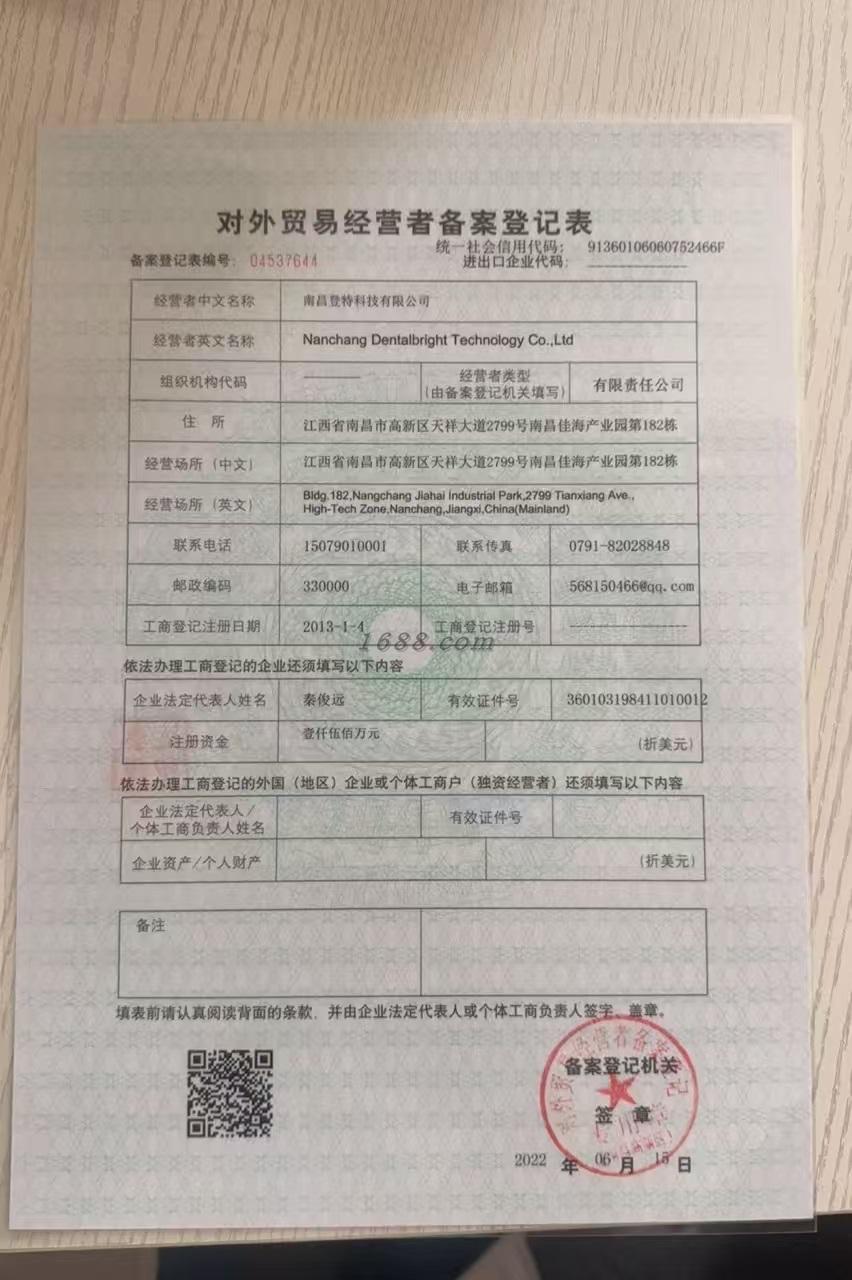 对外贸易经营者备案登记表
统一社会信用代码： 91360106060752466F
备案登记表编号： 04537644
进出口企业代码：
经营者中文名称 南昌登特科技有限公司
经营者英文名称 Nanchang Dentalbright Technology Co.,Ltd
组织机构代码 经营者类型 (由备案登记机关填写) 有限责任公司
住 所 江西省南昌市高新区天祥大道2799号南昌佳海产业园第182栋
经营场所（中文） 江西省南昌市高新区天祥大道2799号南昌佳海产业园第182栋
经营场所（英文） Bldg.182,Nangchang Jiahai Industrial Park,2799 Tianxiang Ave.,
High-Tech Zone,Nanchang,Jiangxi,China(Mainland)
联系电话 15079010001 联系传真 0791-82028848
邮政编码 330000 电子邮箱 568150466@qq.com
工商登记注册日期 2013-1-4 工商登记注册号
1688.com
依法办理工商登记的企业还须填写以下内容
企业法定代表人姓名 秦俊远 有效证件号 360103198411010012
注册资金 壹仟伍佰万元 (折美元)
依法办理工商登记的外国（地区）企业或个体工商户（独资经营者）还须填写以下内容
企业法定代表人/
个体工商负责人姓名 有效证件号
企业资产/个人财产 (折美元)
备注
填表前请认真阅读背面的条款，并由企业法定代表人或个体工商负责人签字、盖章。
对外贸易经营者备案登记
备案登记机关
签 章
2022 年 06 月 15 日